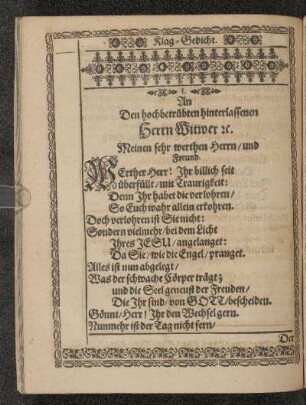 Klag-Gedicht.
I.
An
Den hochbetrübten hinterlassenen
Herrn Witwer ꝛc.
Meinen sehr werthen Herrn/ und
Freund.
WErther Herr! Ihr billich seit
überfüllt/ mit Traurigkeit:
Denn Ihr habet die verlohren/
So Euch wahr allein erkohren.
Doch verlohren ist Sie nicht:
Sondern vielmehr/ bei dem Licht
Ihres JESU/ angelanget:
Da Sie/ wie die Engel/ pranget.
Alles ist nun abgelegt/
Was der schwache Cörper trägt;
und die Seel geneust der Freuden/
Die Ihr sind/ von GOTT/ bescheiden.
Gönnt/ Herr! Ihr den Wechsel gern.
Nunmehr ist der Tag nicht fern/
Der